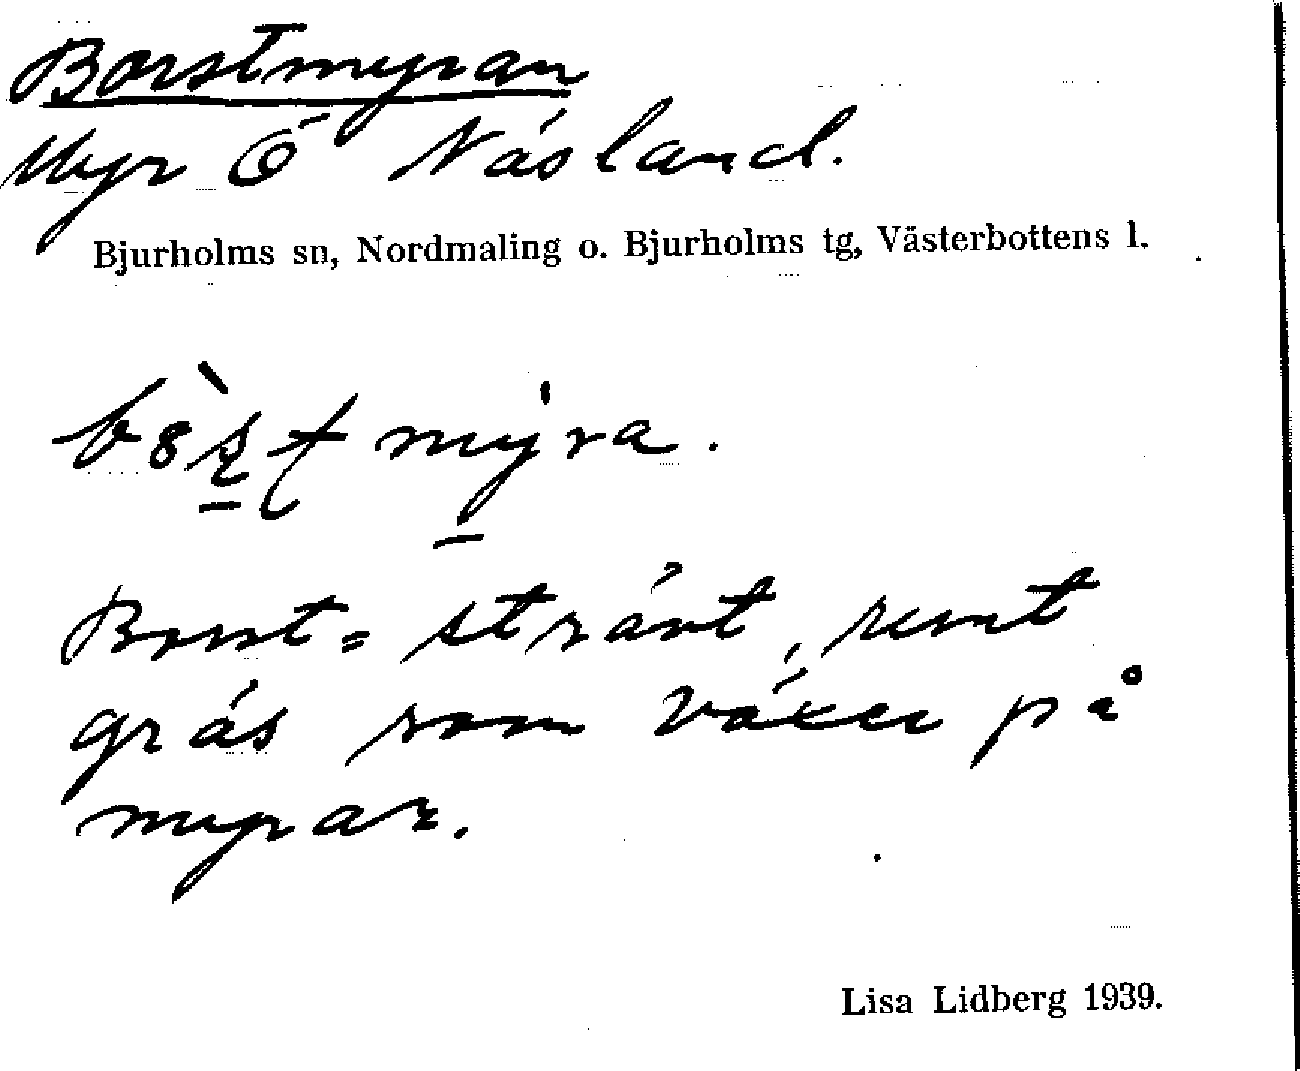 Borstmyran
Myr Ö Näsland.
Bjurholms sn, Nordmaling o. Bjurholms tg, Västerbottens l.
myra.
Borst = strävt, runt
gräs som växer på
myrar.
Lisa Lidberg 1939.